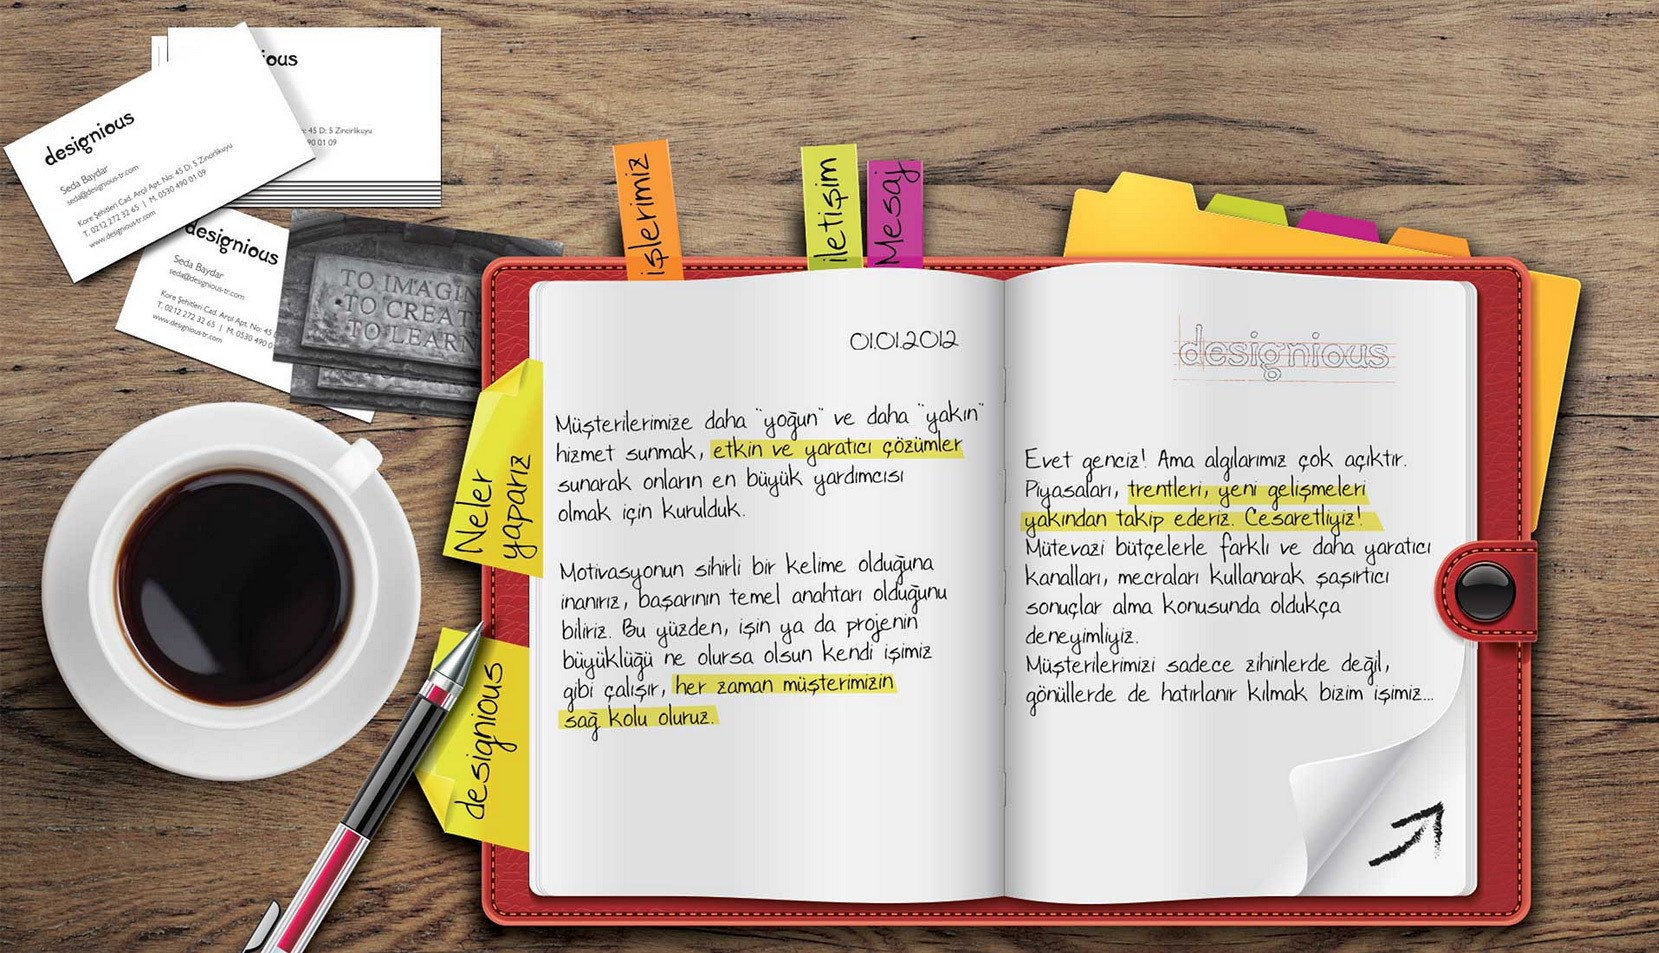 ious
: 45 D: 5 Zincirlikuyu
90 01 09
designious
Seda Baydar
seda@designious-tr.com
Kore Şehitleri Cad. Arçıl Apt. No: 45 D: 5 Zincirlikuyu
T. 0212 272 32 65 | M. 0530 490 01 09
www.designious-tr.com
designious
Seda Baydar
seda@designious-tr.com
Kore Şehitleri Cad. Arçıl Apt. No: 45
T. 0212 272 32 65 | M. 0530 490 0
www.designious-tr.com
TO IMAGIN
TO CREAT
TO LEARN
işlerimiz
iletişim
Mesaj
Neler
yaparız
designious
01.01.2012
Müşterilerimize daha "yoğun" ve daha "yakın"
hizmet sunmak, etkin ve yaratıcı çözümler
sunarak onların en büyük yardımcısı
olmak için kurulduk.
Motivasyonun sihirli bir kelime olduğuna
inanırız, başarının temel anahtarı olduğunu
biliriz. Bu yüzden, işin ya da projenin
büyüklüğü ne olursa olsun kendi işimiz
gibi çalışır, her zaman müşterimizin
sağ kolu oluruz.
designious
Evet genciz! Ama algılarımız çok açıktır.
Piyasaları, trentleri, yeni gelişmeleri
yakından takip ederiz. Cesaretliyiz!
Mütevazi bütçelerle farklı ve daha yaratıcı
kanalları, mecraları kullanarak şaşırtıcı
sonuçlar alma konusunda oldukça
deneyimliyiz.
Müşterilerimizi sadece zihinlerde değil,
gönüllerde de hatırlanır kılmak bizim işimiz...